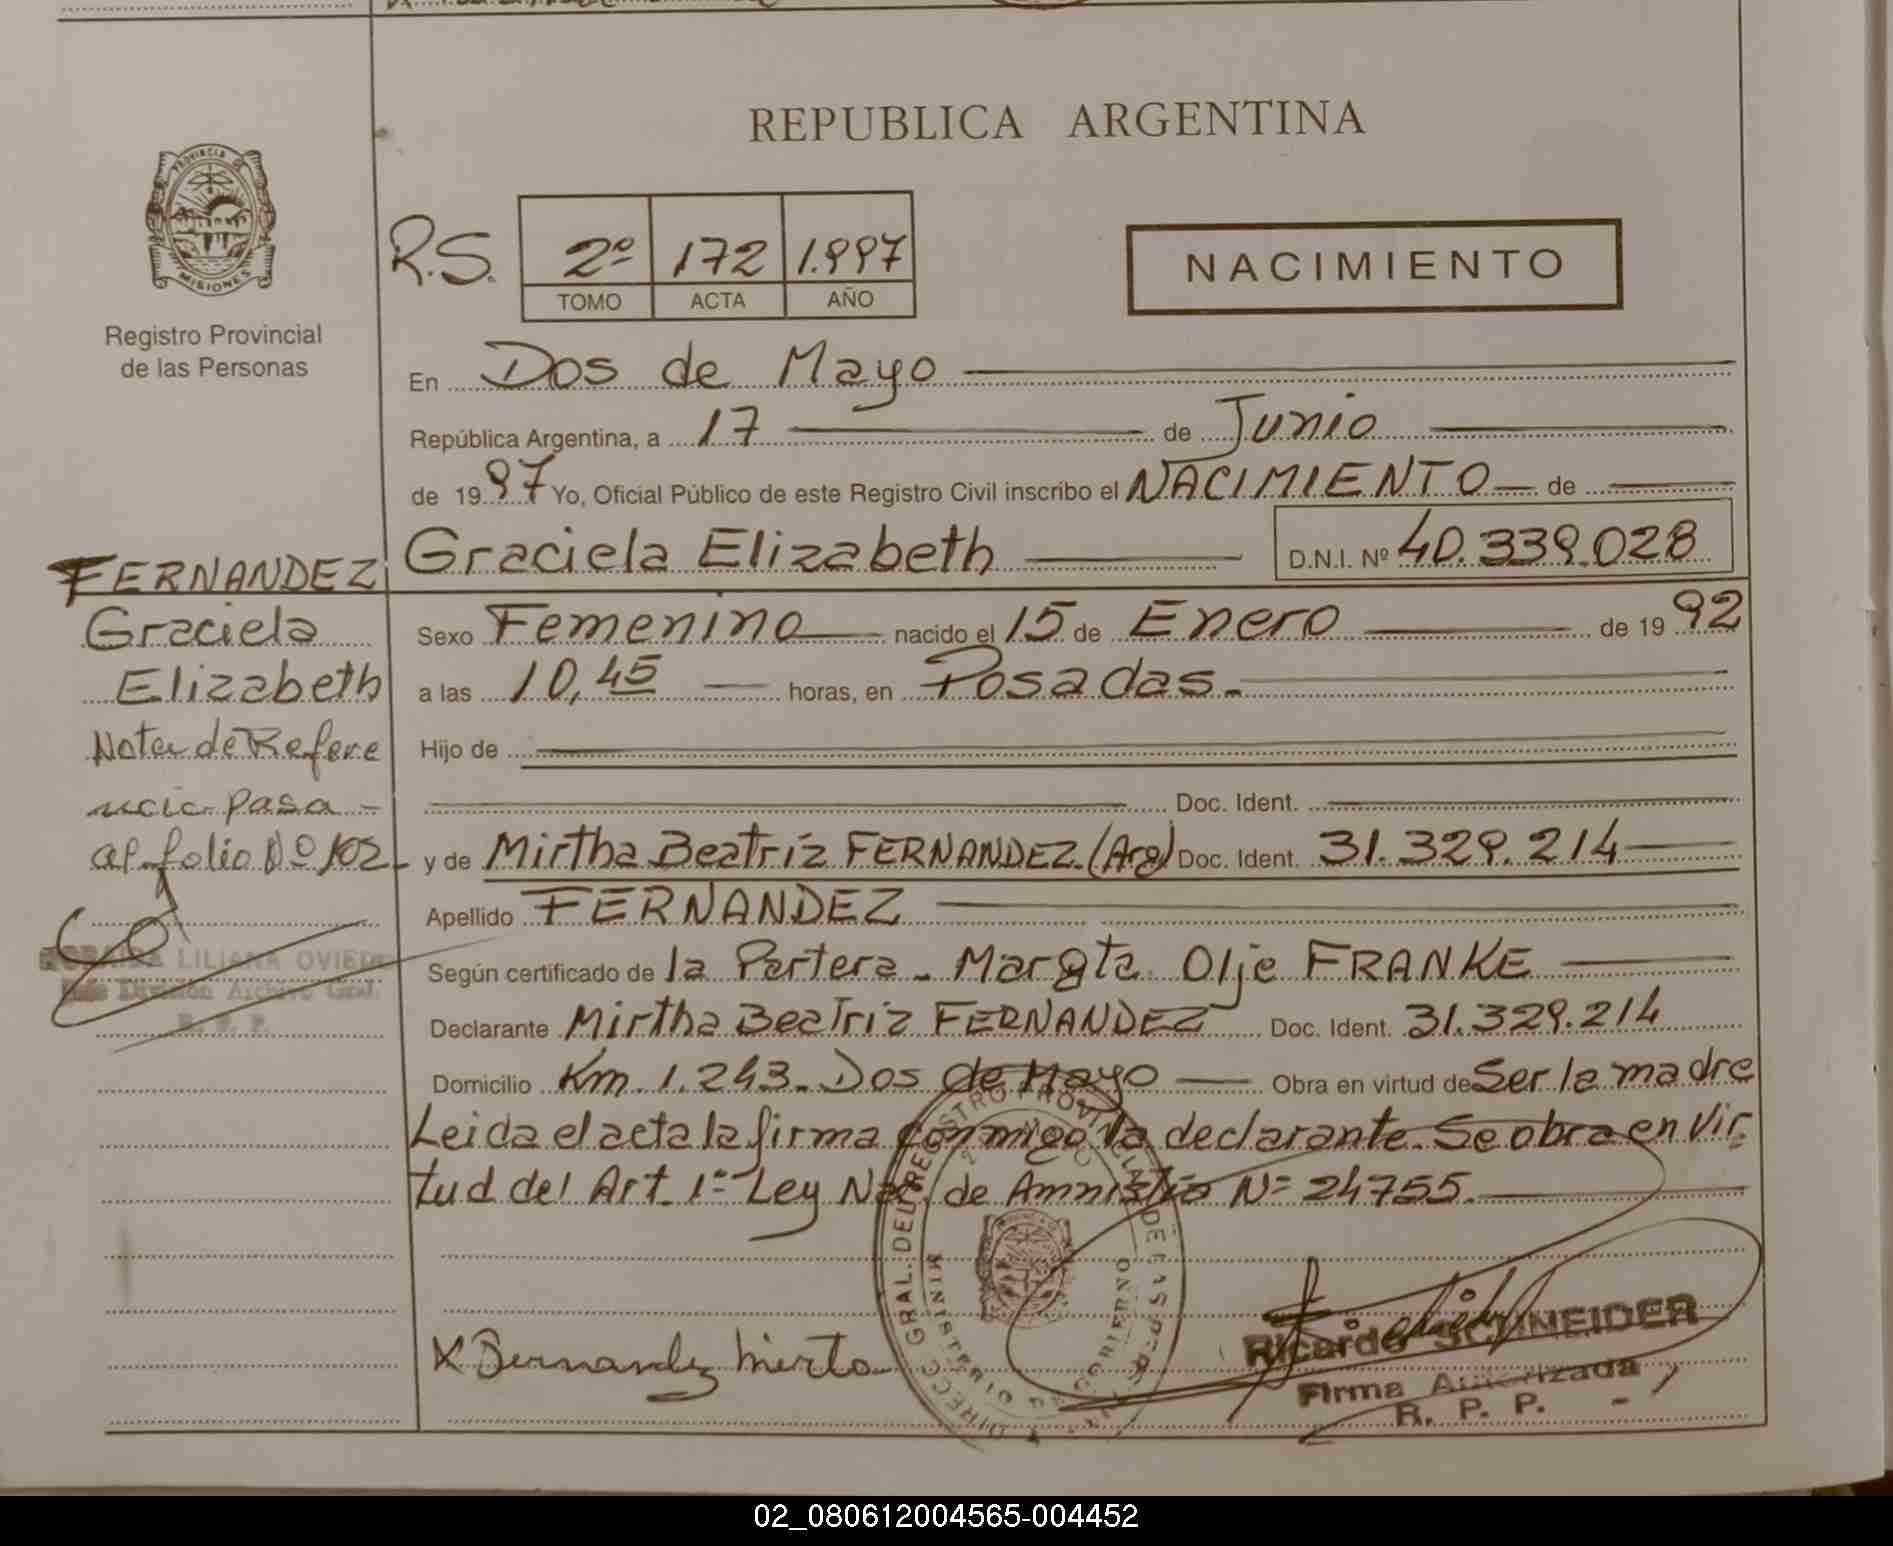 REPUBLICA ARGENTINA
PROVINCIA DE
MISIONES
Registro Provincial
de las Personas
R.S. 2º 172 1.997
TOMO ACTA AÑO
NACIMIENTO
En Dos de Mayo
República Argentina, a 17 de Junio
de 1997 Yo, Oficial Público de este Registro Civil inscribo el NACIMIENTO de
Graciela Elizabeth D.N.I. Nº 40.339.028
FERNANDEZ
Graciela
Elizabeth
Nota de Refere
ncia pasa
al folio Nº 102
LILIANA OVIEDO
División Archivo Gral.
R. P. P.
Sexo Femenino nacido el 15 de Enero de 1992
a las 10,45 horas, en Posadas.
Hijo de
Doc. Ident.
y de Mirtha Beatriz FERNANDEZ (Arg) Doc. Ident. 31.329.214
Apellido FERNANDEZ
Según certificado de la Partera - Margta Olje FRANKE
Declarante Mirtha Beatriz FERNANDEZ Doc. Ident. 31.329.214
Domicilio Km. 1.243. Dos de Mayo Obra en virtud de Ser la madre
Leida el acta la firma conmigo la declarante. Se obra en vir
tud del Art. 1= Ley Nac. de Amnistia N= 24755.
DIRECC. GRAL. DEL REGISTRO PROVINCIAL DE LAS PERSONAS
MINISTERIO DE GOBIERNO
X Fernandez Mirta
Ricardo SCHNEIDER
Firma Autorizada
R. P. P.
02_080612004565-004452